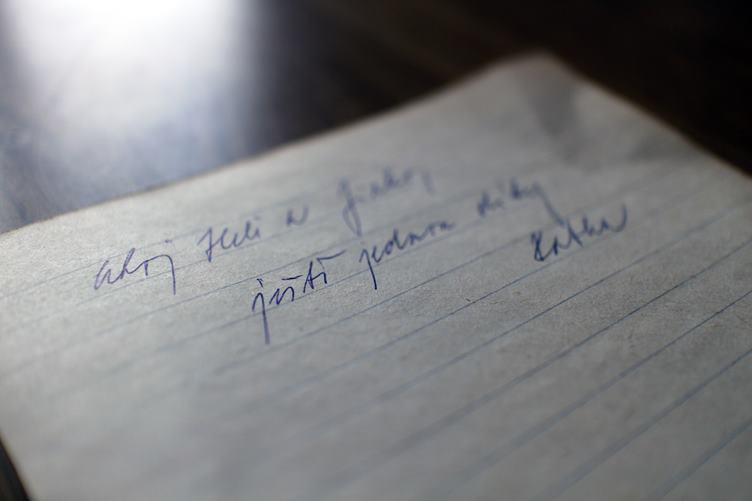 Ahoj Heli a Jirko,
ještě jednou díky
Katka